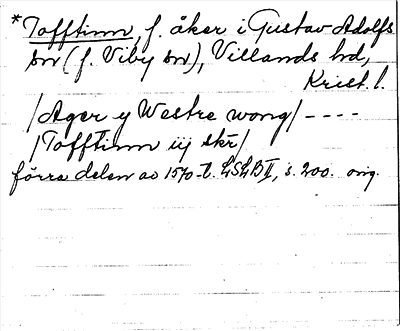 *Tofftinn, f. åker i Gustav Adolfs
sn (f. Viby sn), Villands hd,
Krist. l.
/Ager y Westre wong/ ----
/Tofftinn iij skr/
förra delen av 1570-t. LSLB II, s. 200. orig.